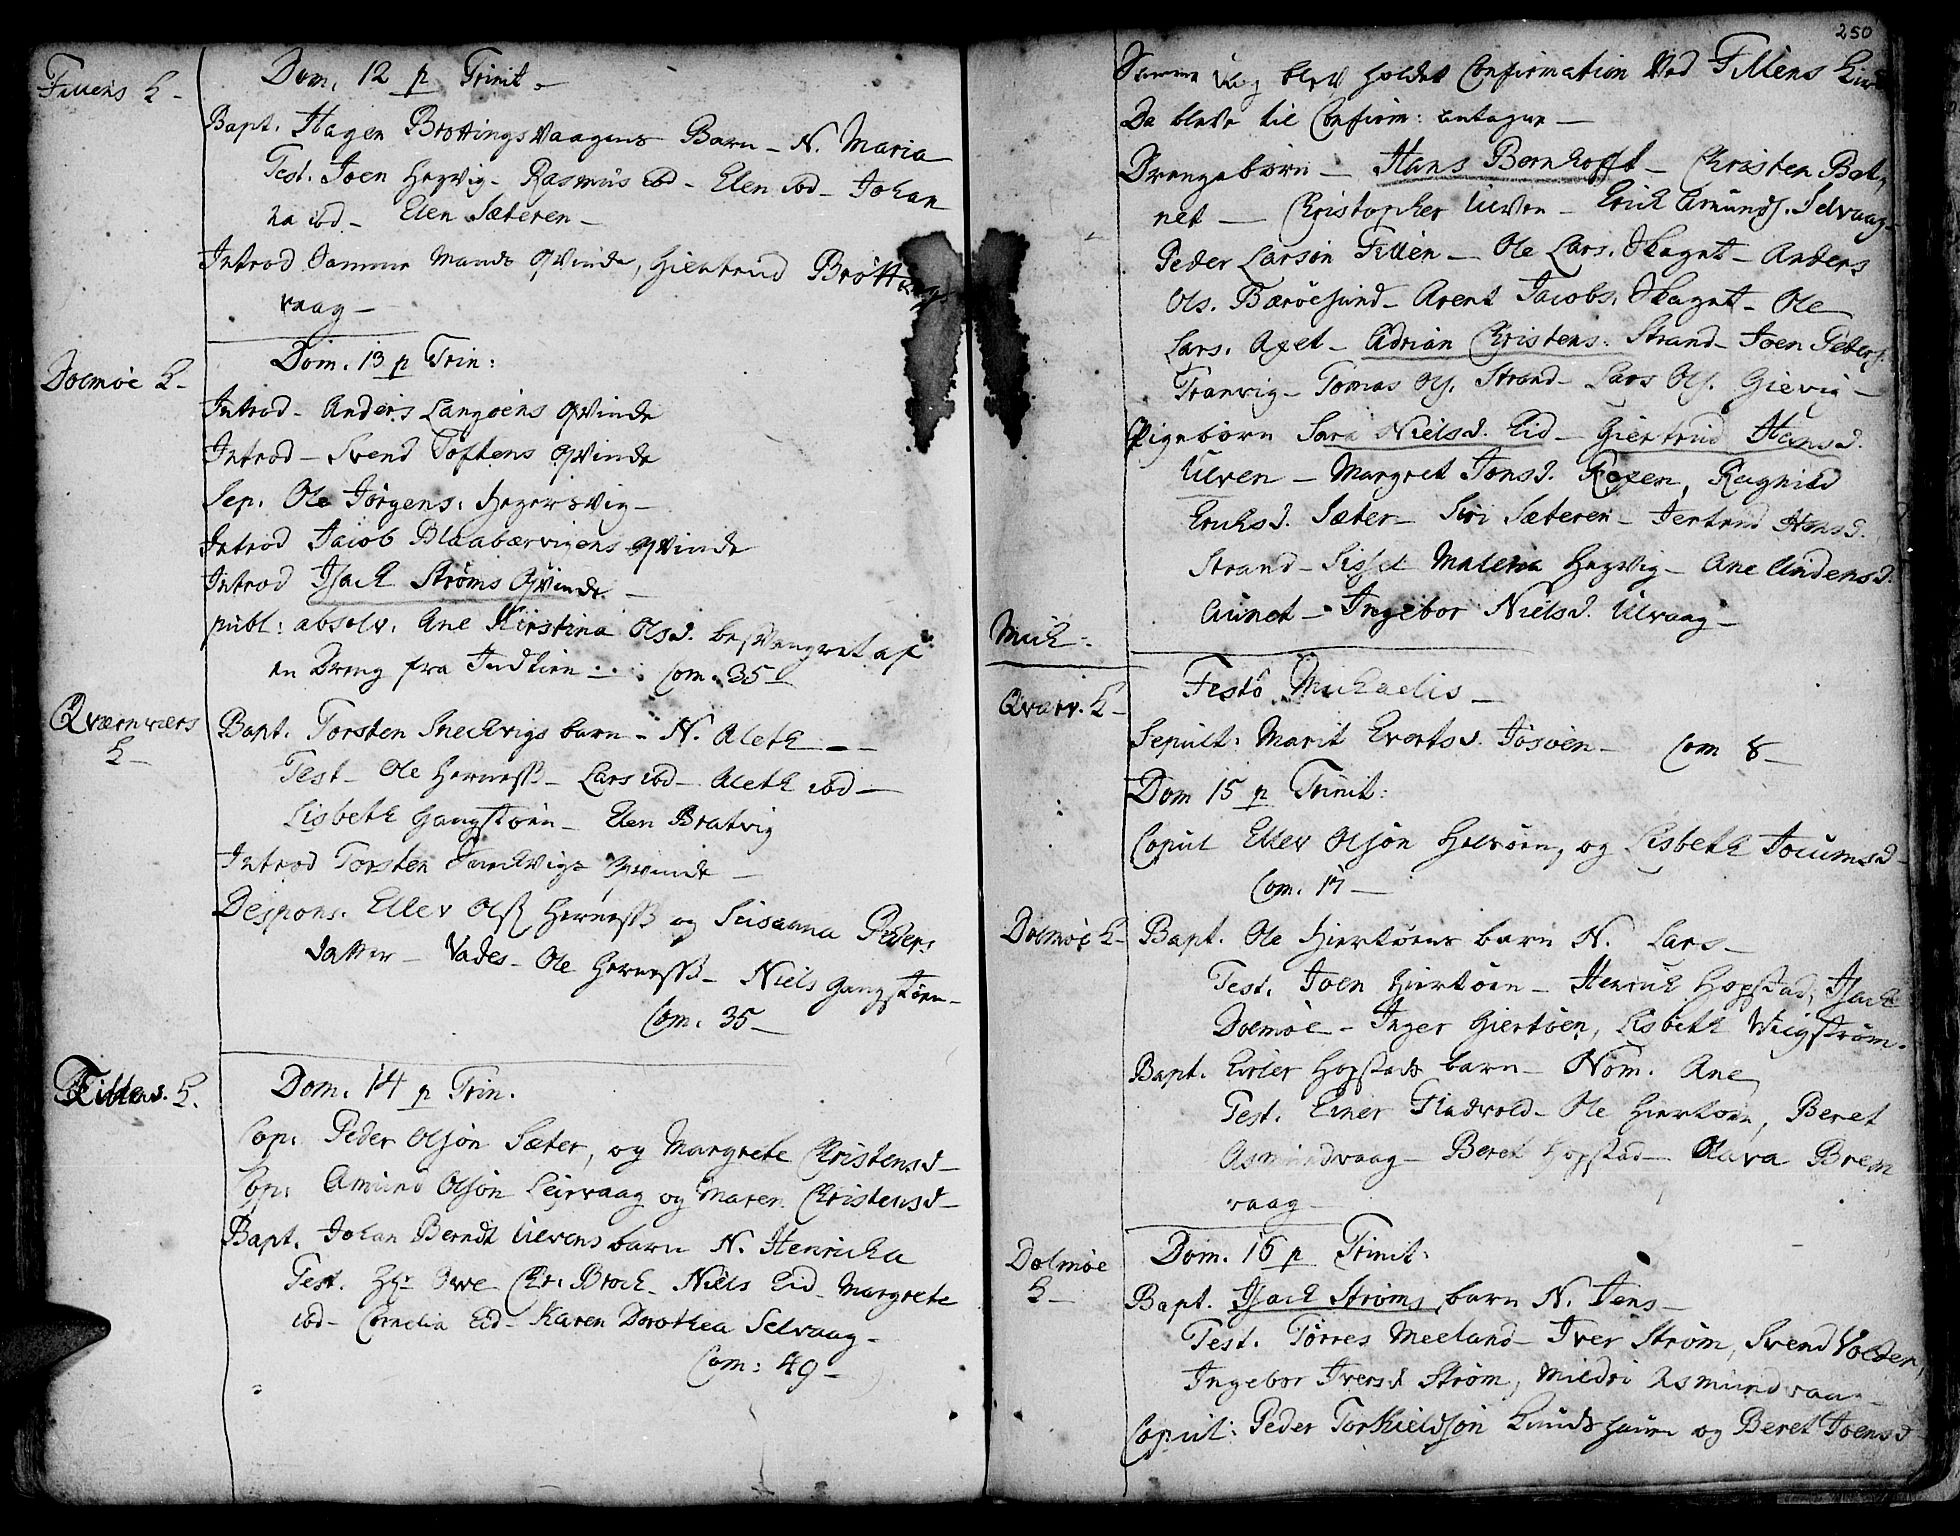 Fillens K-
Dom. 12 p Trinit-
Bapt. Hagen Brottingsvaagens Barn - N. Maria
Test. Joen Hegvig - Rasmus ibd - Elen ibd - Johan
na ibd - Elen Sæteren -
Introd Samme Mands Qvinde, Giertrud Brøttings
vaag -
Dolmøe K-
Dom. 13 p Trin:
Introd - Anders Langøens Qvinde
Introd - Svend Toftens Qvinde
Sep. Ole Jørgens. Hegersvig -
Introd Jacob Blaabærvigens Qvinde
Introd Isach Strøms Qvinde -
publ: absolv. Ane Kirstina Olsd. besvangret af
en Dreng fra Com. 35 -
Qværnværs
K-
Bapt. Torsten Snechvigs barn - N. Aleth -
Test - Ole Herness - Lars ibd - Aleth ibd -
Lisbeth Gangstøen - Elen Bratvig
Introd Torsten Snechvigs Qvinde -
Despons. Ellev Olss Herness og Susanna Peders
datter - Vades - Ole Herness - Niels Gangstøen -
Com. 35 -
Fillens. K.
Dom. 14 p Trin.
Cop: Peder Olson Sæter, og Margrete Christensd -
Cop: Amund Olson Leirvaag og Maren Christensd -
Bapt. Johan Berndt Ulvens barn N. Henricha
Test. Hr Owe Chr. Broch - Niels Eid - Margrete
ibd - Cornelia Eid - Karen Dorothea Selvaag -
Com: 49 -
250
Samme Dag blev holdet Confirmation Ved Fillens Kirke
Da bleve til Confirm: antagne -
Drengebørn - Hans Bernhofft - Christen Bat,
net - Christopher Ulven - Erich Amunds. Selvaag -
Peder Larson Fillen - Ole Lars. Skagnt - Anders
Ols. Barøesund - Arent Jacobs. Skagnt - Ole
Lars. Axet - Adrian Christens. Strand - Joen Peders.
Tranvig - Tomas Ols. Strand - Lars Ols. Gievig -
Pigebørn Sara Nielsd. Eid - Giertrud Hansd.
Ulven - Margret Jonsd. Roxen, Ragnild
Erichsd. Sæter - Siri Sæteren - Jertrud Hansd.
Strand - Sissel Malena Hegvig - Ane Andersd.
Aunet - Ingebor Nielsd. Ulvaag -
Mich:
Festo Michaelis -
Qværv. K-
Sepult: Marit Evertsd. Jøsøen - Com 8 -
Dom 15 p Trinit:
Copul Ellev Olson Helsøen, og Lisbeth Jocumsd -
Com. 17 -
Dolmøe K-
Bapt. Ole Hiertøens barn N. Lars -
Test. Joen Hiertøen - Henrich Hopstad, Isach
Dolmøe - Inger Giertøen, Lisbeth Wiigstrøm.
Bapt. Eirler Hopstads barn - Nom. Ane
Test. Einer Gladvold - Ole Hiertøen, Beret
Asmundvaag - Beret Hopstad - Olava Brem
vaag -
Dolmøe
K-
Dom. 16 p Trinit:
Bapt. Isach Strøms barn N. Jens -
Test. Tørres Meeland - Iver Strøm, Svend Volden,
Ingebor Iversd Strøm, Mildri Asmundvaag
Copul: Peder Torkieldson Kundshaun og Beret Joensd -